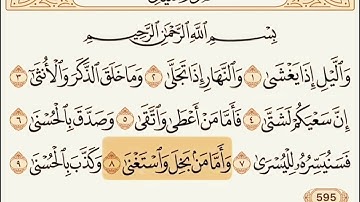 بِسْمِ اللَّهِ الرَّحْمَٰنِ الرَّحِيمِ
وَاللَّيْلِ إِذَا يَغْشَىٰ ١ وَالنَّهَارِ إِذَا تَجَلَّىٰ ٢ وَمَا خَلَقَ الذَّكَرَ وَالْأُنثَىٰ ٣
إِنَّ سَعْيَكُمْ لَشَتَّىٰ ٤ فَأَمَّا مَنْ أَعْطَىٰ وَاتَّقَىٰ ٥ وَصَدَّقَ بِالْحُسْنَىٰ ٦
فَسَنُيَسِّرُهُ لِلْيُسْرَىٰ ٧ وَأَمَّا مَن بَخِلَ وَاسْتَغْنَىٰ ٨ وَكَذَّبَ بِالْحُسْنَىٰ ٩
595